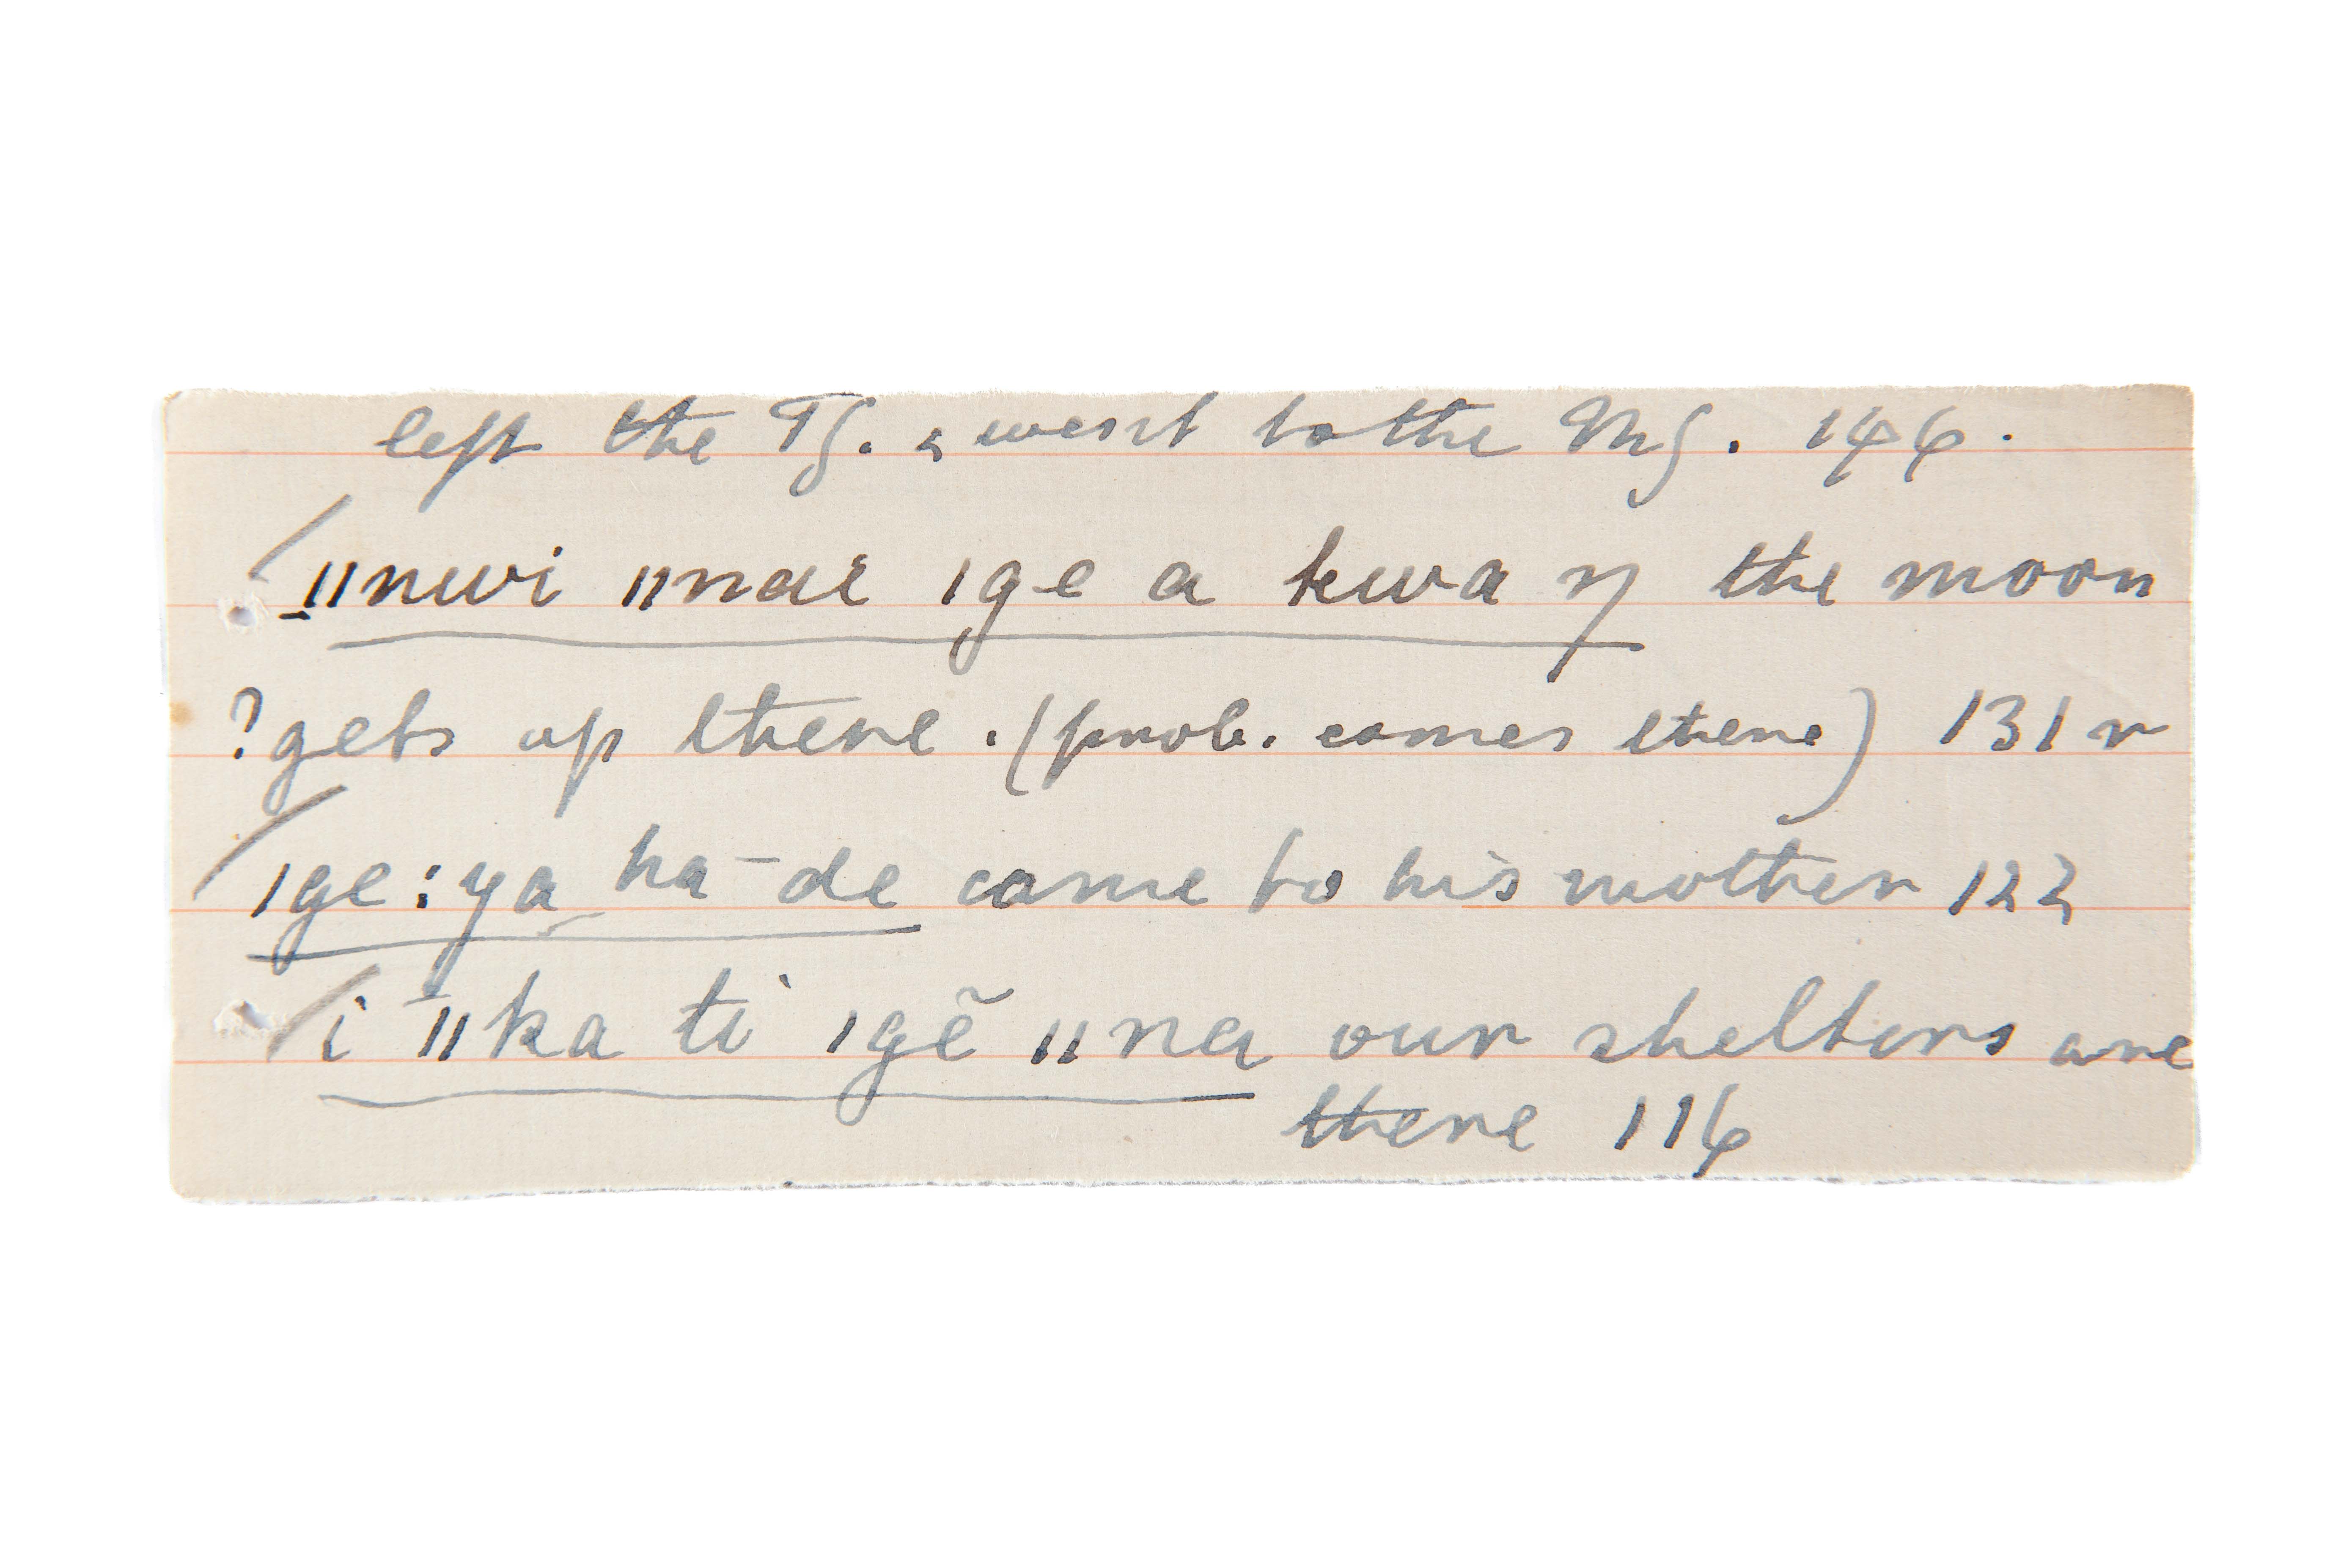 left the Tʃ. & went to the Mʃ. 146.
ǁnwi ǁnae ǀge a kwa ŋ the moon
? gets up there. (prob. comes there) 131 r
ǀge:ya ha-de came to his mother 122
i ǁka ti ǀgẽ ǁna our shelters are
there 116